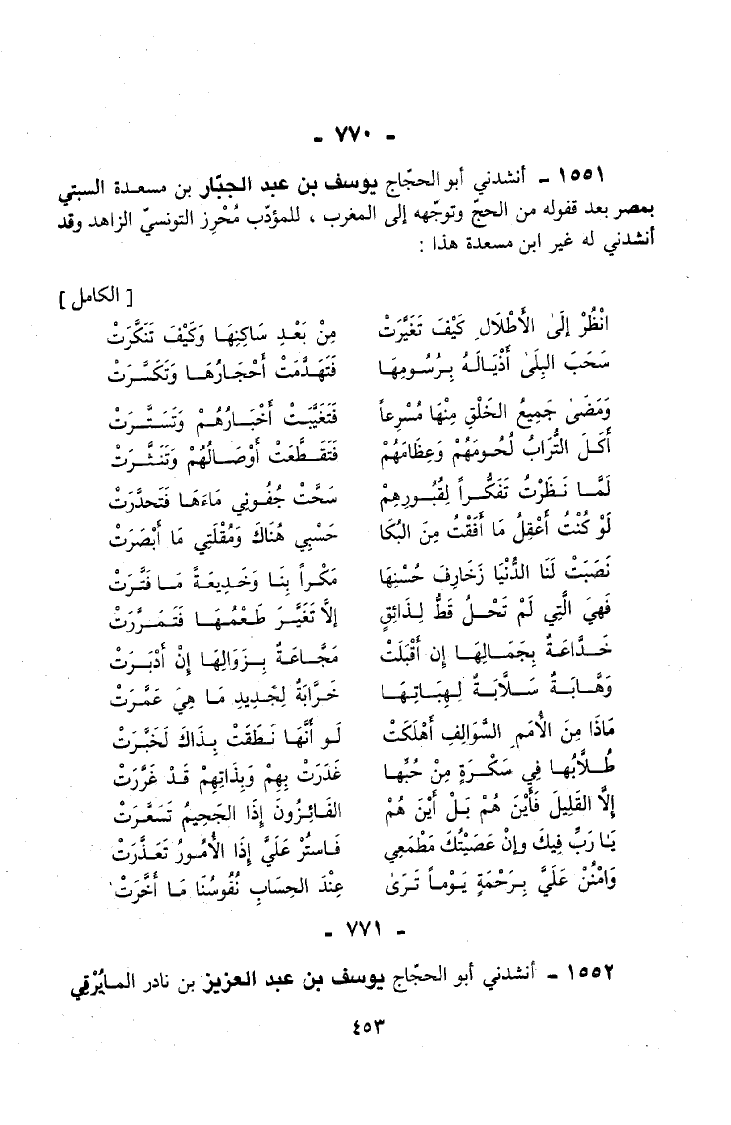 - ٧٧٠ -
١٥٥١ - أنشدني أبو الحجّاج يوسف بن عبد الجبّار بن مسعدة السبتي
بمصر بعد قفوله من الحجّ وتوجّهه إلى المغرب ، للمؤدّب مُحْرِز التونسيّ الزاهد وقد
أنشدني له غير ابن مسعدة هذا :
[ الكامل ]
انْظُرْ إلَى الأَطْلَالِ كَيْفَ تَغَيَّرَتْ مِنْ بَعْدِ سَاكِنِهَا وَكَيْفَ تَنَكَّرَتْ
سَحَبَ البِلَى أَذْيَالَهُ بِرُسُومِهَا فَتَهَدَّمَتْ أَحْجَارُهَا وَتَكَسَّرَتْ
وَمَضَى جَمِيعُ الخَلْقِ مِنْهَا مُسْرِعاً فَتَغَيَّبَتْ أَخْبَارُهُمْ وَتَسَتَّرَتْ
أَكَلَ التُّرَابُ لُحُومَهُمْ وَعِظَامَهُمْ فَتَقَطَّعَتْ أَوْصَالُهُمْ وَتَنَثَّرَتْ
لَمَّا نَظَرْتُ تَفَكُّراً لِقُبُورِهِمْ سَحَّتْ جُفُونِي مَاءَهَا فَتَحدَّرَتْ
لَوْ كُنْتُ أَعْقِلُ مَا أَفَقْتُ مِنَ البُكَا حَسْبِي هُنَاكَ وَمُقْلَتِي مَا أَبْصَرَتْ
نَصَبَتْ لَنَا الدُّنْيَا زَخَارِفَ حُسْنِهَا مَكْراً بِنَا وَخَدِيعَةً مَا فَتَّرَتْ
فَهِيَ الَّتِي لَمْ تَحْلُ قَطُّ لِذَائِقٍ إلاَّ تَغَيَّرَ طَعْمُهَا فَتَمَرَّرَتْ
خَدَّاعَةٌ بِجَمَالِهَا إن أَقْبَلَتْ مَجَّاعَةٌ بِزَوَالِهَا إنْ أَدْبَرَتْ
وَهَّابَةٌ سَلَّابَةٌ لِهِبَاتِهَا خَرَّابَةٌ لِجَدِيدِ مَا هِيَ عَمَّرَتْ
مَاذَا مِنَ الأُمَمِ السَّوَالِفِ أَهْلَكَتْ لَو أَنَّهَا نَطَقَتْ بِذَاكَ لَخَبَّرَتْ
طُلَّابُها فِي سَكْرَةٍ مِنْ حُبِّهَا غَدَرَتْ بِهِمْ وَبِذَاتِهِمْ قَدْ غَرَّرَتْ
إلَّا القَلِيلَ فَأَيْنَ هُمْ بَلْ أَيْنَ هُمْ الفَائِزُونَ إذَا الجَحِيمُ تَسَعَّرَتْ
يَا رَبِّ فِيكَ وإنْ عَصَيْتُكَ مَطْمَعِي فَاسْتُرْ عَلَيَّ إذَا الأُمُورُ تَعَذَّرَتْ
وَامْنُنْ عَلَيَّ بِرَحْمَةٍ يَوْماً تَرَى عِنْدَ الحِسَابِ نُفُوسُنَا مَا أَخَّرَتْ
- ٧٧١ -
١٥٥٢ - أنشدني أبو الحجّاج يوسف بن عبد العزيز بن نادر المايُرْقي
٤٥٣